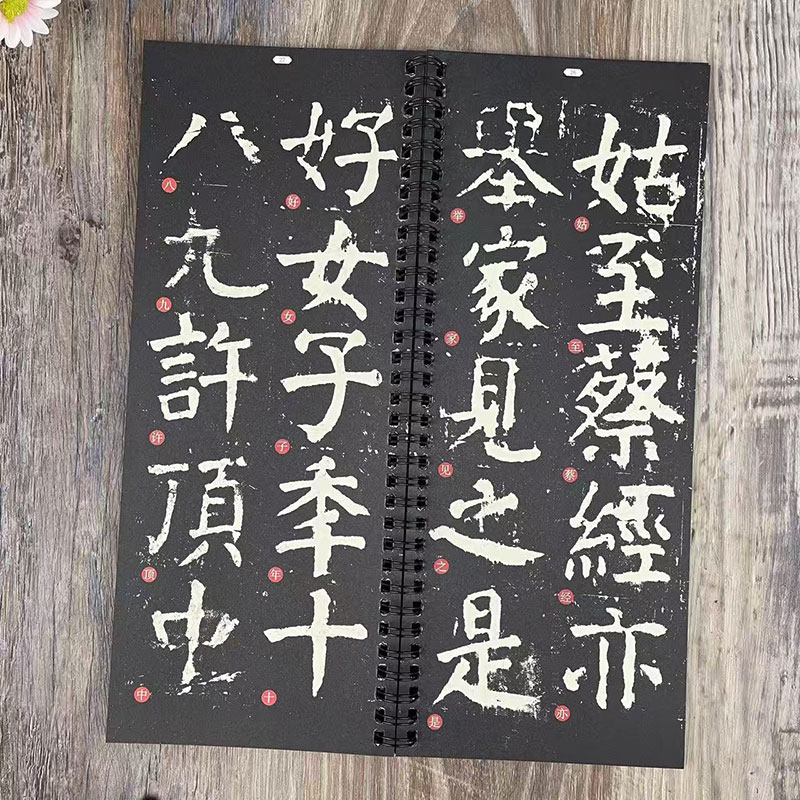 26
姑至蔡經亦
姑至蔡经亦
舉家見之是
举家见之是
27
好女子秊十
好女子年十
八九許頂中
八九许顶中